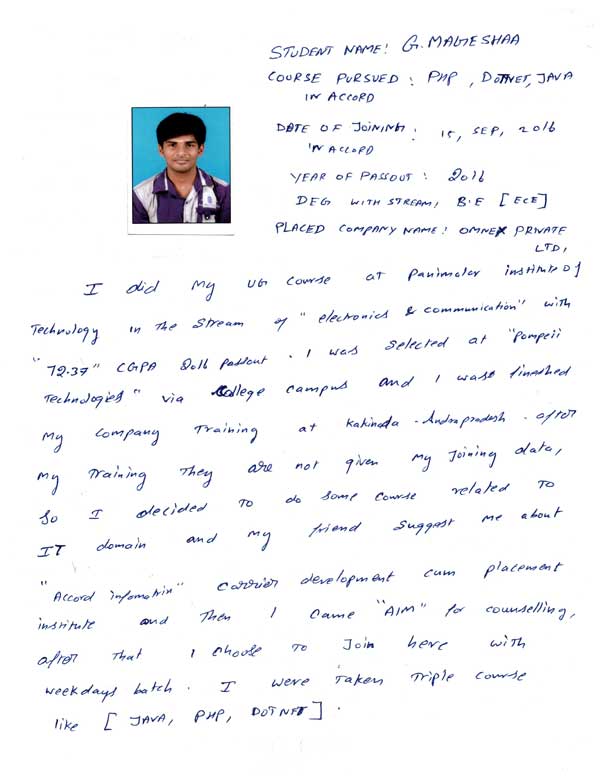 STUDENT NAME: G. MAGESHAA
COURSE PURSUED : PHP , DOTNET, JAVA
IN ACCORD
DATE OF JOINING : 15, SEP, 2016
IN ACCORD
YEAR OF PASSOUT : 2016
DEG WITH STREAM, B.E [ECE]
PLACED COMPANY NAME : OMNEX PRIVATE
LTD,
I did my UG course at Panimalar institute of
Technology in the stream of "electronics & communication" with
"72.37" CGPA 2016 passout . I was selected at "Pompeii
Technologies" via college campus and I was finished
my company Training at Kakinada - Andrapradesh . after
my training they are not given my joining data,
so I decided to do some course related to
IT domain and my friend suggest me about
"Accord infomatrin" carrier development cum placement
institute and then I came "AIM" for counselling,
after that I choose to Join here with
weekdays batch . I were taken Triple course
like [ JAVA, PHP, DOTNET ] .